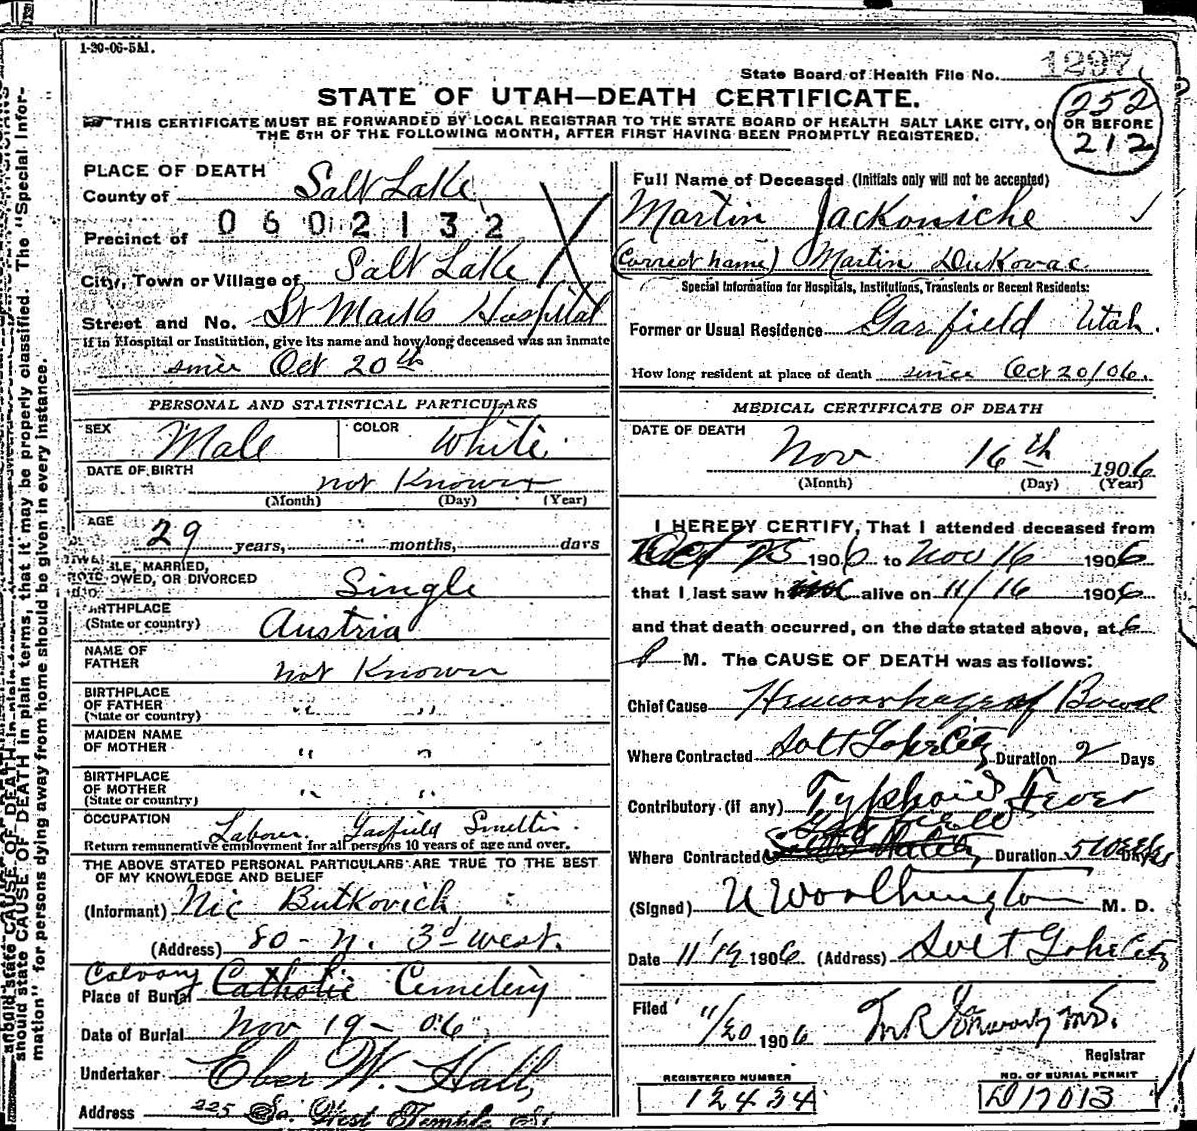 1-20-06-5M.
State Board of Health File No. 1297
STATE OF UTAH—DEATH CERTIFICATE.
THIS CERTIFICATE MUST BE FORWARDED BY LOCAL REGISTRAR TO THE STATE BOARD OF HEALTH SALT LAKE CITY, ON OR BEFORE
THE 5TH OF THE FOLLOWING MONTH, AFTER FIRST HAVING BEEN PROMPTLY REGISTERED.
252
212
PLACE OF DEATH
County of Salt Lake
0602132
Precinct of
City, Town or Village of Salt Lake
Street and No. St Marks Hospital
if in Hospital or Institution, give its name and how long deceased was an inmate
since Oct 20th
PERSONAL AND STATISTICAL PARTICULARS
SEX Male COLOR White
DATE OF BIRTH not Known
(Month) (Day) (Year)
AGE 29 years, months, days
SINGLE, MARRIED,
WIDOWED, OR DIVORCED Single
BIRTHPLACE
(State or country) Austria
NAME OF
FATHER not Known
BIRTHPLACE
OF FATHER
(State or country) " "
MAIDEN NAME
OF MOTHER " "
BIRTHPLACE
OF MOTHER
(State or country) " "
OCCUPATION Labour. Garfield Smelter.
Return remunerative employment for all persons 10 years of age and over.
THE ABOVE STATED PERSONAL PARTICULARS ARE TRUE TO THE BEST
OF MY KNOWLEDGE AND BELIEF
(Informant) Nic Butkovich
(Address) 80 - N. 3d West.
Calvary
Place of Burial Catholic Cemetery
Date of Burial Nov 19 - 06
Undertaker Eber W. Hall,
Address 225 So. West Temple St
Full Name of Deceased (Initials only will not be accepted)
Martin Jackoniche
(Correct name) Martin Dukovac
Special Information for Hospitals, Institutions, Transients or Recent Residents:
Former or Usual Residence Garfield Utah.
How long resident at place of death since Oct 20/06.
MEDICAL CERTIFICATE OF DEATH
DATE OF DEATH
Nov 16th 1906
(Month) (Day) (Year)
I HEREBY CERTIFY, That I attended deceased from
Oct 25 1906 to Nov 16 1906
that I last saw him alive on 11/16 1906
and that death occurred, on the date stated above, at 6
P M. The CAUSE OF DEATH was as follows:
Chief Cause Hemorrhage of Bowel
Where Contracted Salt Lake City Duration 2 Days
Contributory (if any) Typhoid Fever
Garfield
Where Contracted Salt Lake City Duration 5 weeks Days
(Signed) U Woolhington M. D.
Date 11/19 1906 (Address) Salt Lake City
Filed 11/20 1906
Registrar
REGISTERED NUMBER
12434
NO. OF BURIAL PERMIT
D17013
should state CAUSE OF DEATH in plain terms, that it may be properly classified. The "Special Infor-
mation" for persons dying away from home should be given in every instance.